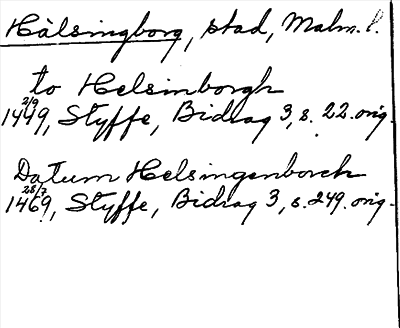 Hälsingborg, stad, Malm. l.
to Helsinborgh
2/9 1449, Styffe, Bidrag 3, s. 22. orig.
Datum Helsingenborch
28/7 1469, Styffe, Bidrag 3, s. 249. orig.